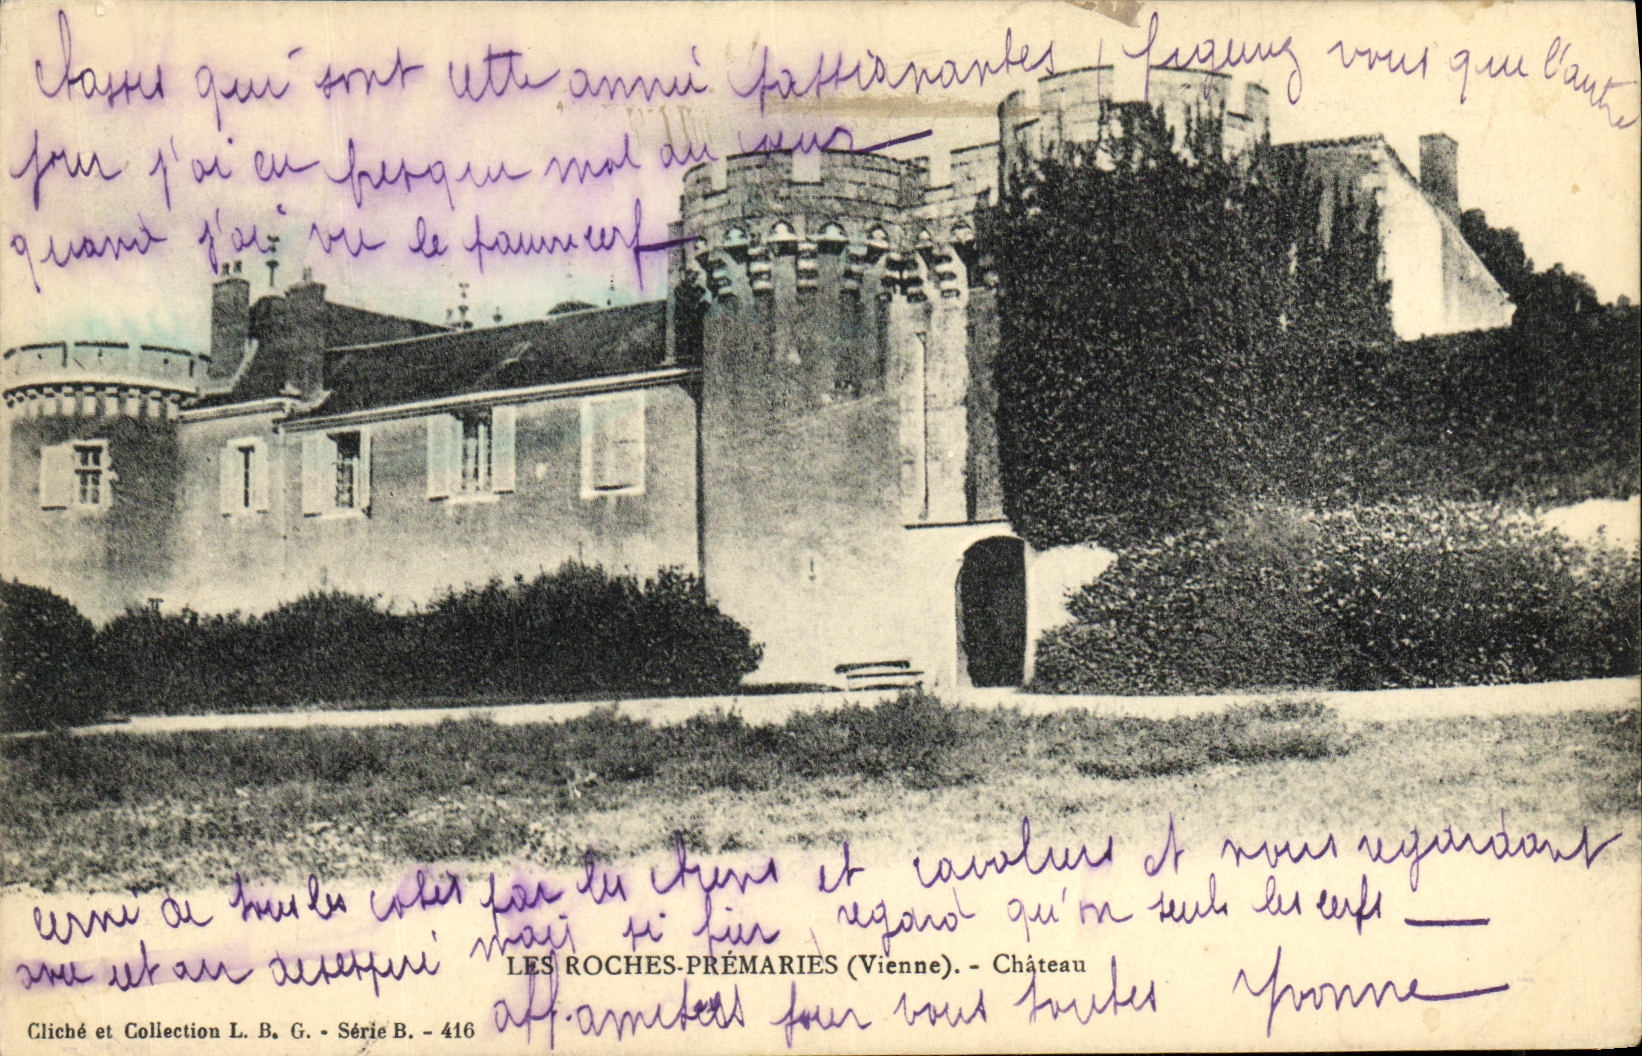 chasses qui sont cette année passionantes, figurez vous que l'autre
jour j'ai eu presque mal au cœur
quand j'ai vu le pauvre cerf
cerné de tous les cotés par les chiens et cavaliers et nous regardant
avec cet air desesperé mais si fier, regard qu'on seuls les cerfs
LES ROCHES-PRÉMARIES (Vienne). - Château
aff. amities pour vous toutes Yvonne
Cliché et Collection L. B. G. - Série B. - 416